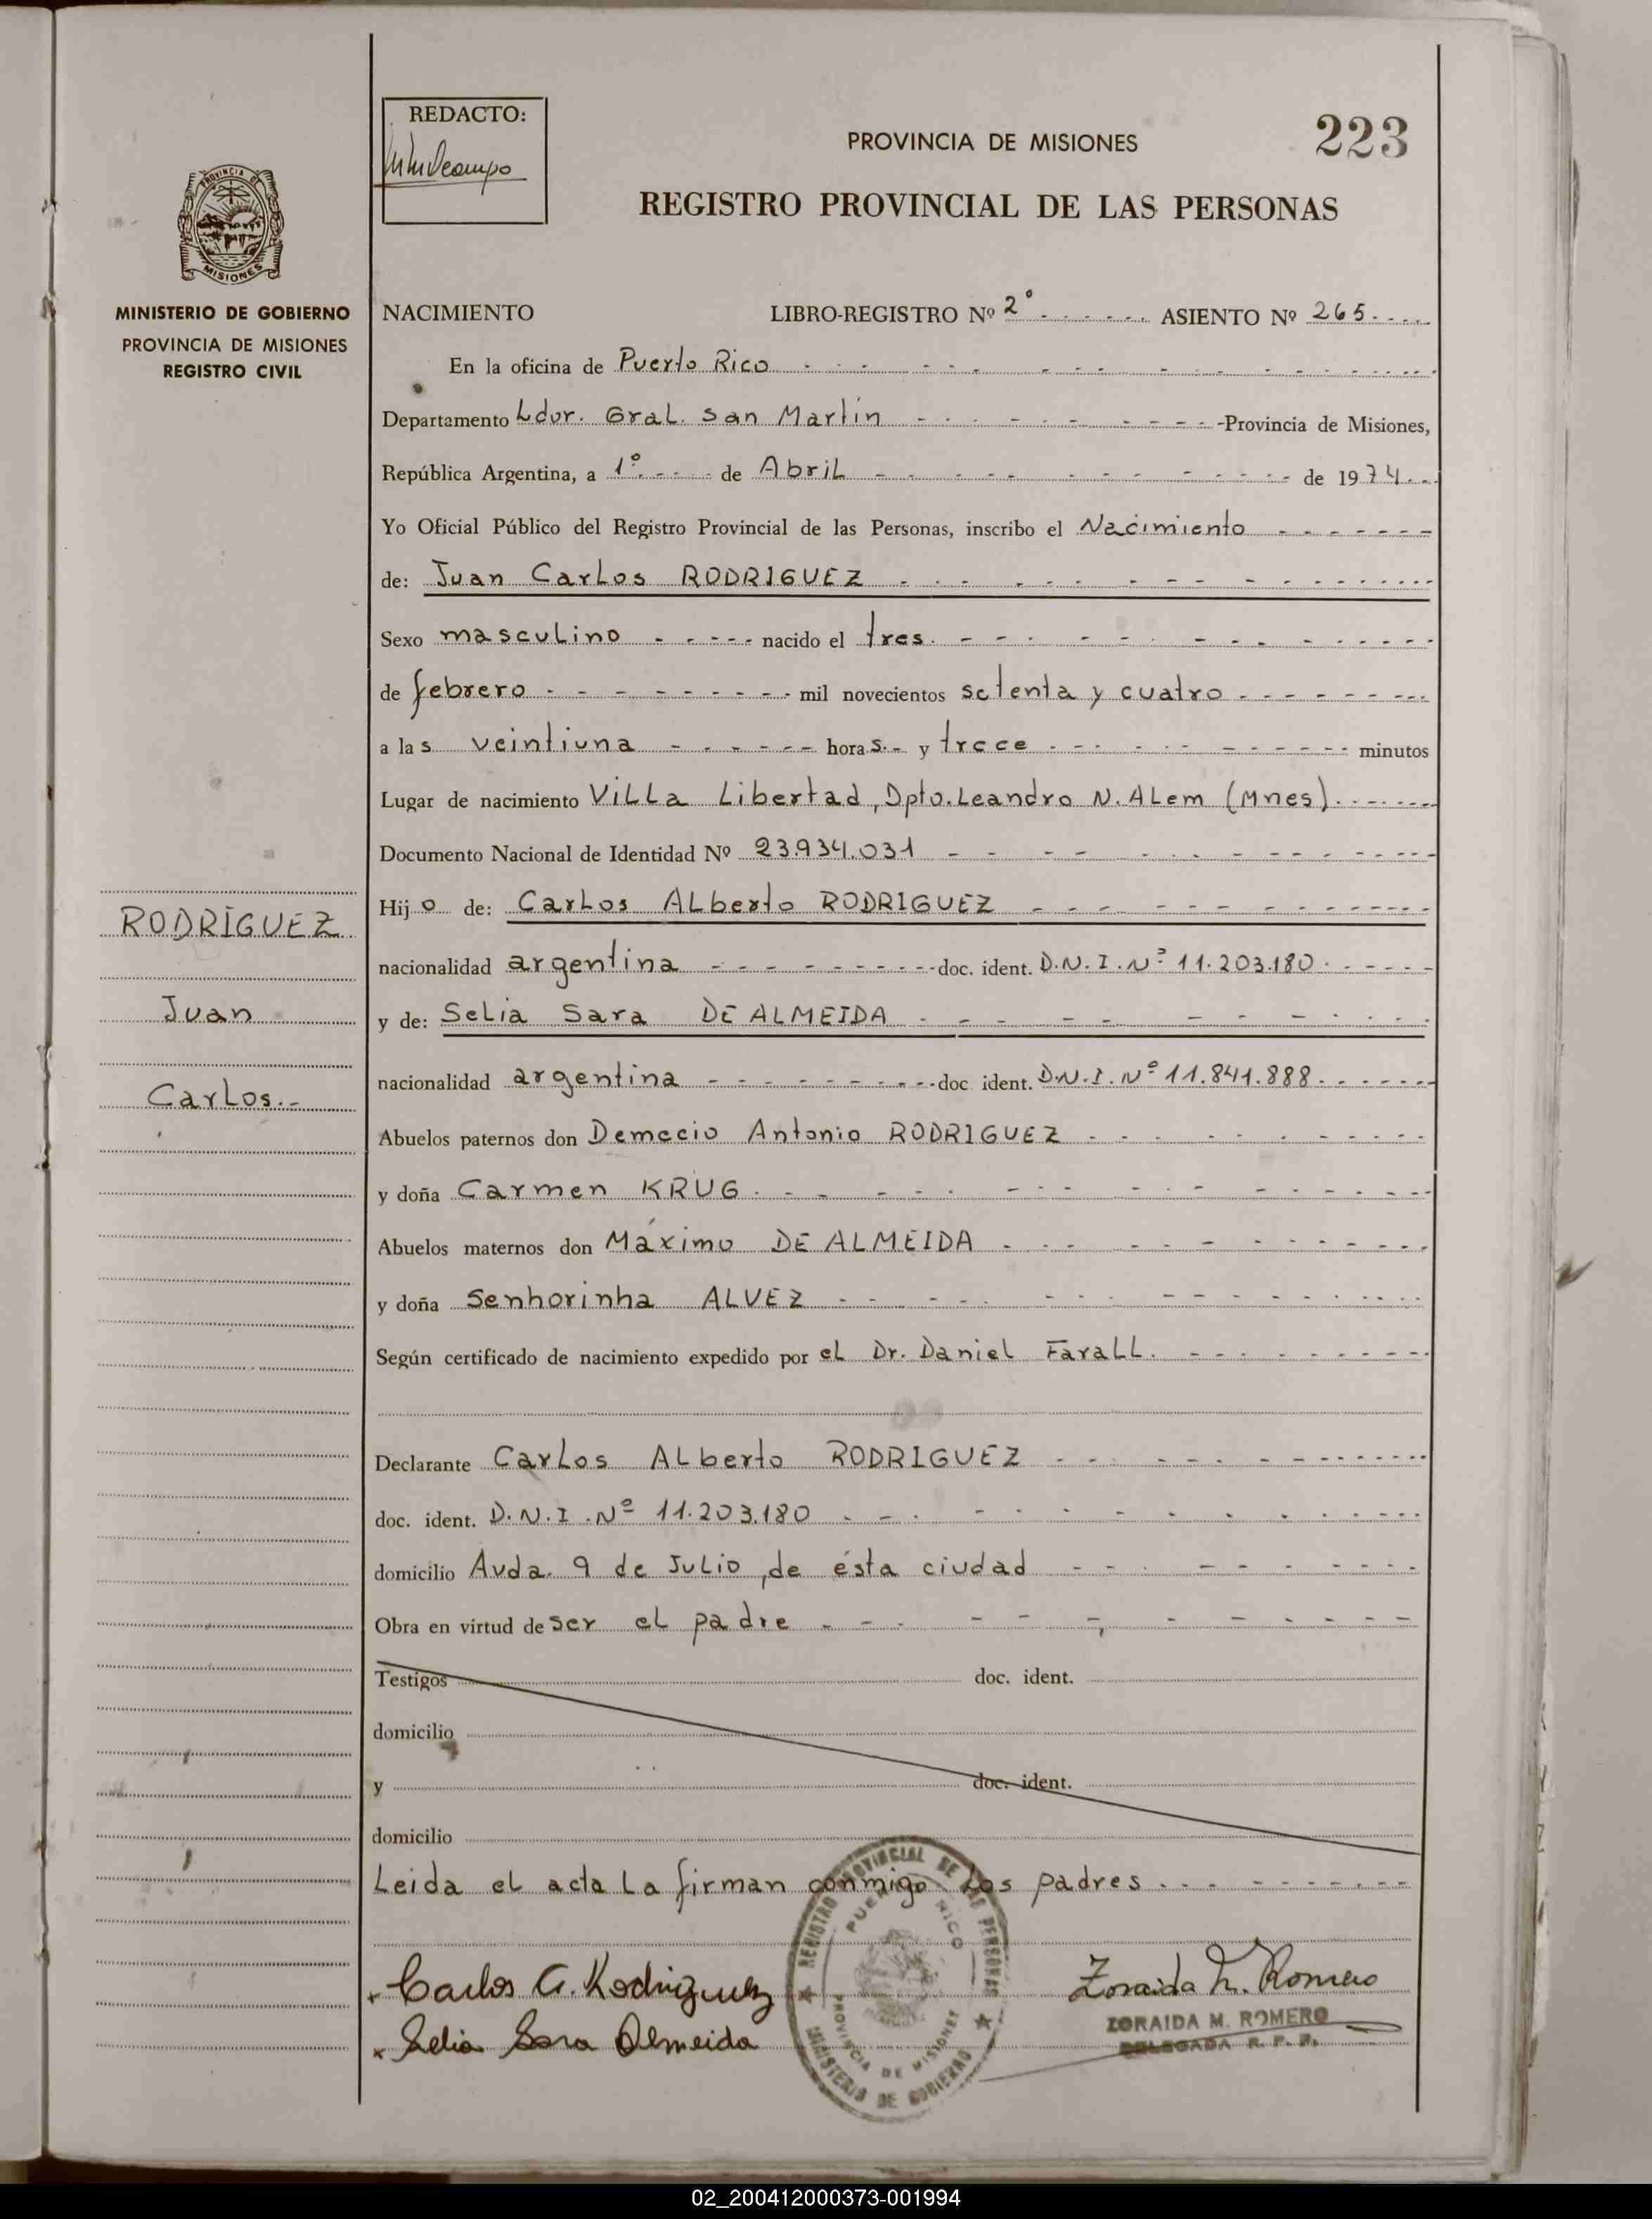 REDACTO:
PROVINCIA DE MISIONES
223
REGISTRO PROVINCIAL DE LAS PERSONAS
PROVINCIA DE
MISIONES
MINISTERIO DE GOBIERNO
PROVINCIA DE MISIONES
REGISTRO CIVIL
NACIMIENTO LIBRO-REGISTRO Nº 2º ASIENTO Nº 265
En la oficina de Puerto Rico
Departamento Ldor. Gral. San Martín -Provincia de Misiones,
República Argentina, a 1º de Abril de 1974
Yo Oficial Público del Registro Provincial de las Personas, inscribo el Nacimiento
de: Juan Carlos RODRIGUEZ
Sexo masculino nacido el tres
de febrero mil novecientos setenta y cuatro
a las veintiuna horas.- y trece minutos
Lugar de nacimiento Villa Libertad, Dpto. Leandro N. Alem (Mnes).
Documento Nacional de Identidad Nº 23.934.031
Hijo de: Carlos Alberto RODRIGUEZ
nacionalidad argentina doc. ident. D.N.I. Nº 11.203.180
y de: Selia Sara DE ALMEIDA
nacionalidad argentina doc ident. D.N.I. Nº 11.841.888
Abuelos paternos don Demecio Antonio RODRIGUEZ
y doña Carmen KRUG
Abuelos maternos don Máximo DE ALMEIDA
y doña Senhorinha ALVEZ
Según certificado de nacimiento expedido por el Dr. Daniel Farall.
Declarante Carlos Alberto RODRIGUEZ
doc. ident. D.N.I. Nº 11.203.180
domicilio Avda. 9 de Julio, de ésta ciudad
Obra en virtud de ser el padre
Testigos doc. ident.
domicilio
y doc. ident.
domicilio
Leida el acta la firman conmigo los padres
RODRÍGUEZ
Juan
Carlos.-
Carlos A. Rodriguez
Selia Sara Almeida
REGISTRO PROVINCIAL DE LAS PERSONAS
PUERTO RICO
PROVINCIA DE MISIONES
MINISTERIO DE GOBIERNO
Zoraida M. Romero
ZORAIDA M. ROMERO
DELEGADA R. P. P.
02_200412000373-001994